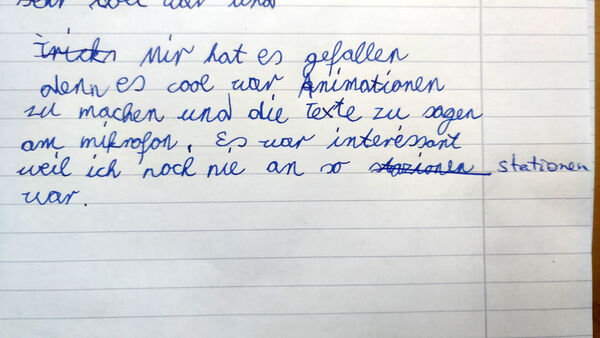 Mir hat es gefallen
denn es cool war Animationen
zu machen und die Texte zu sagen
am mikrofon. Es war interessant
weil ich noch nie an so stationen
war.